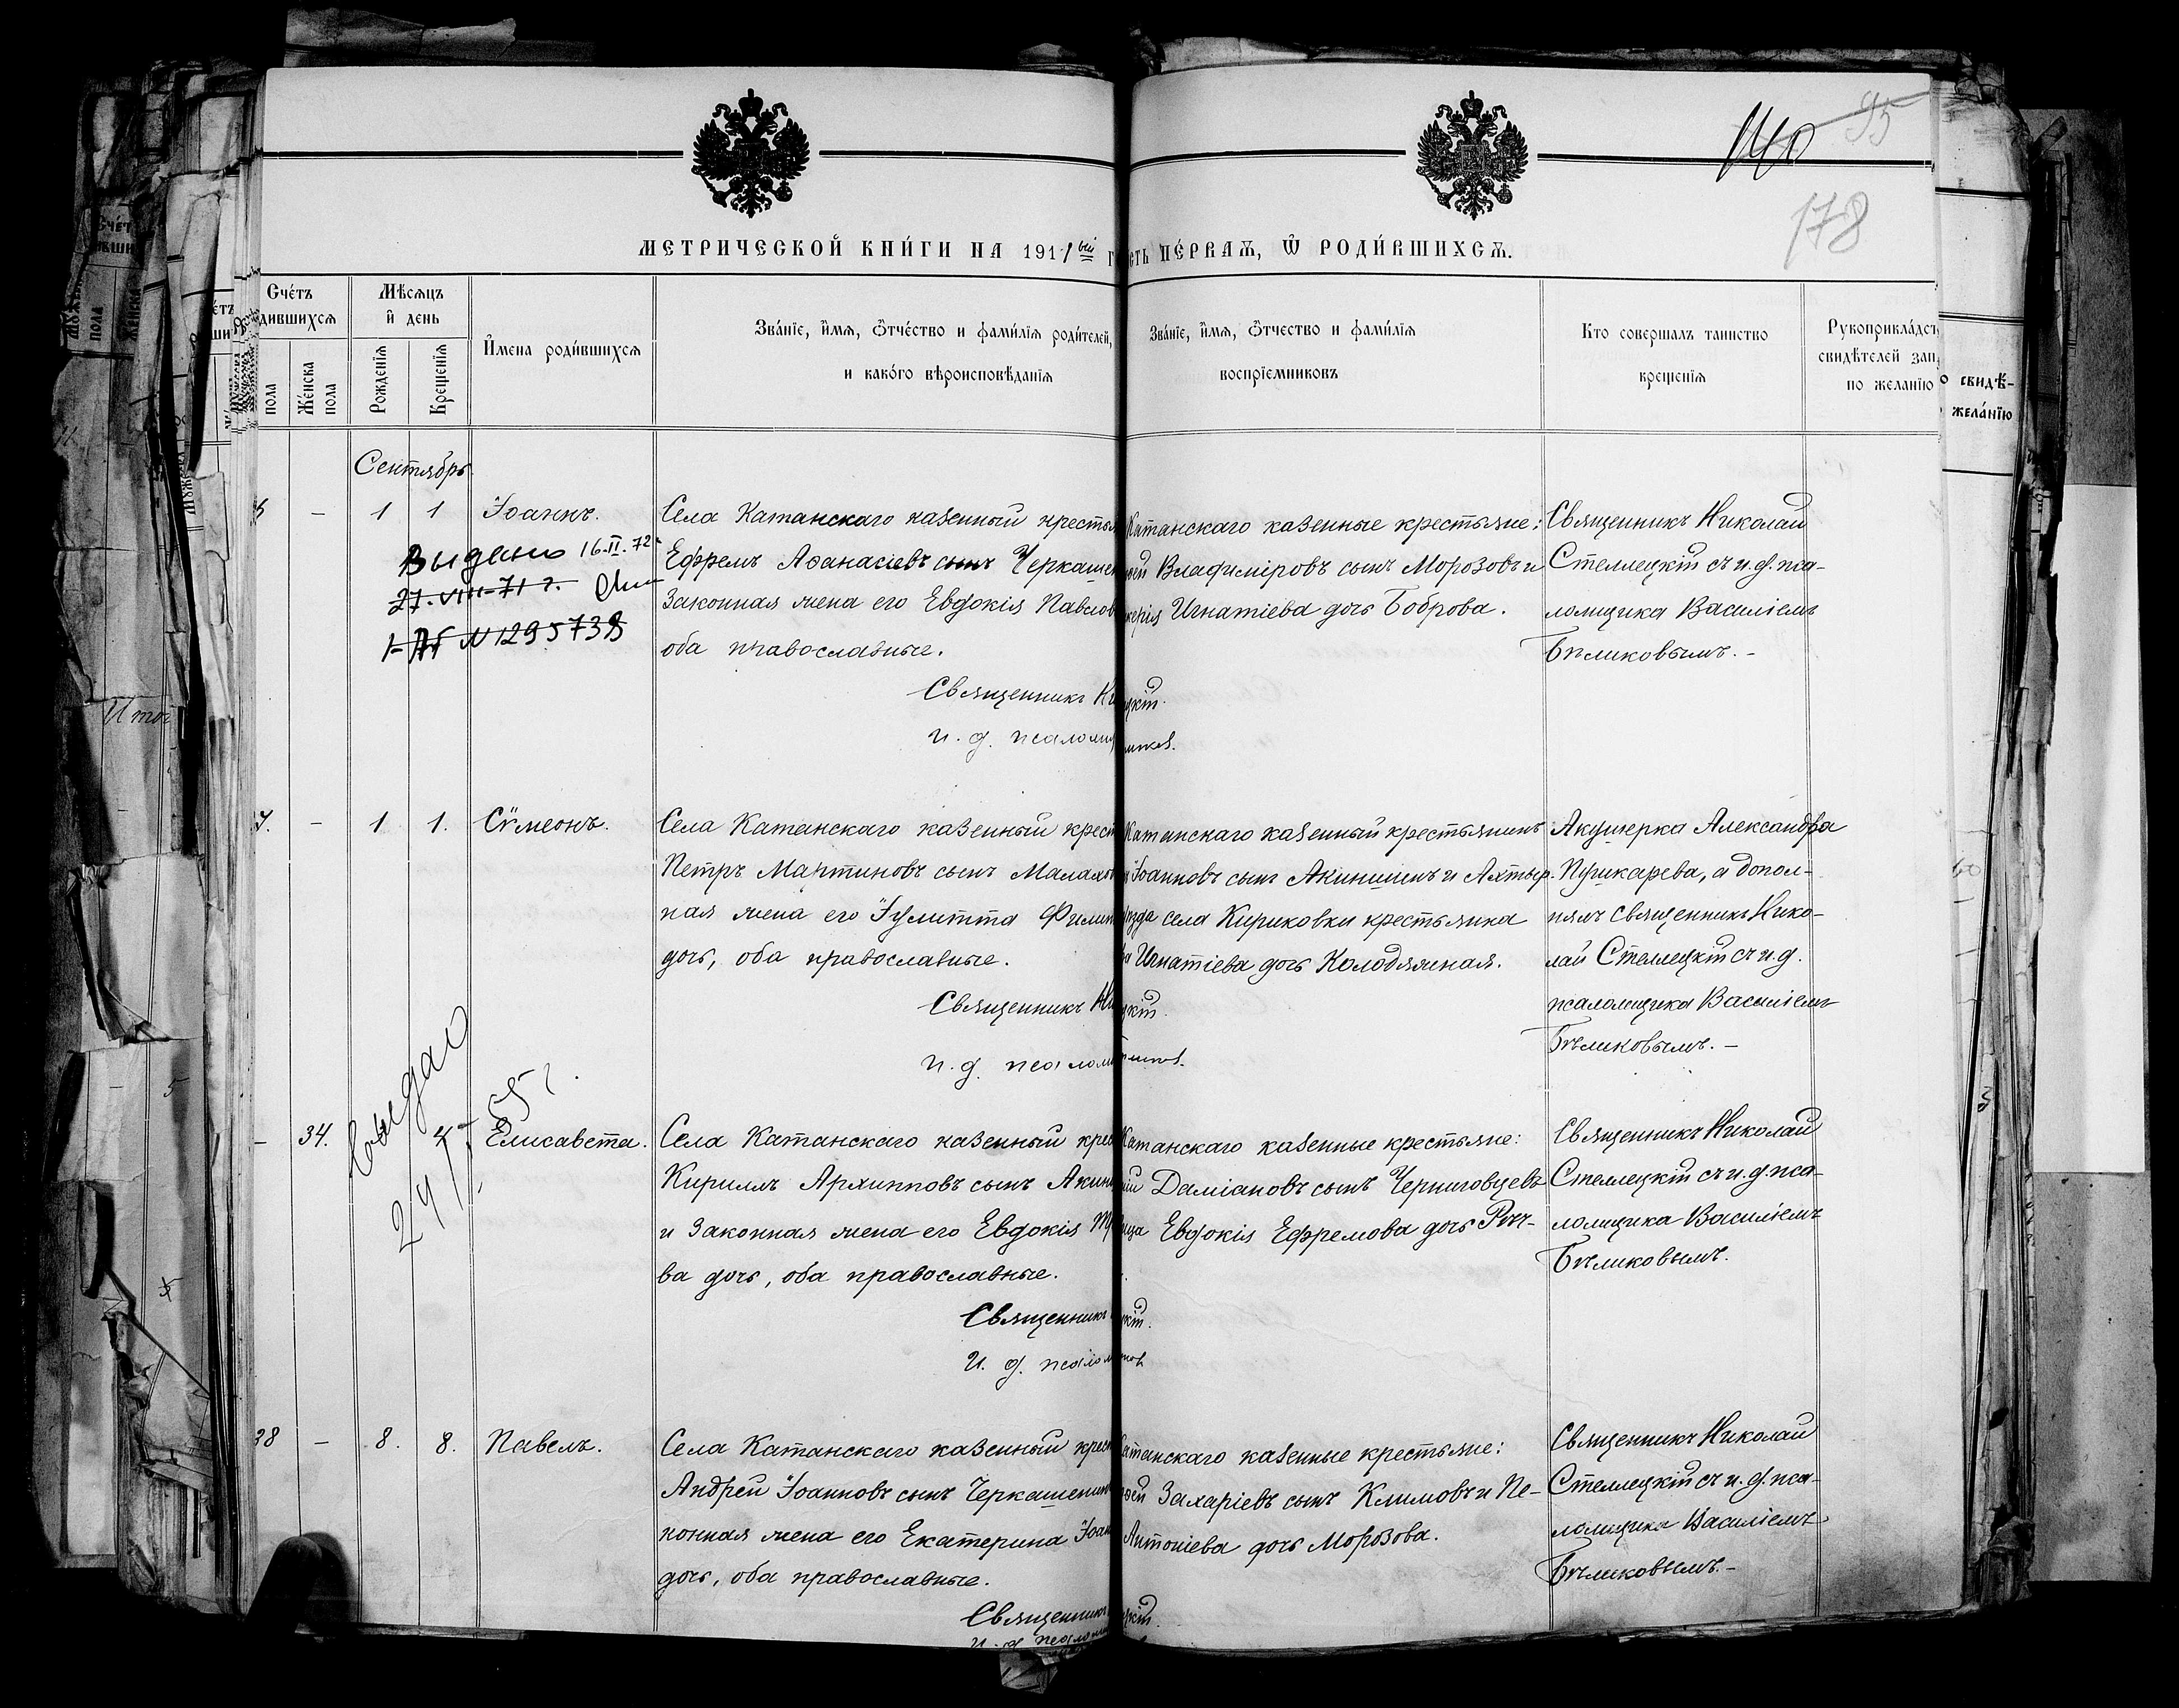 140 95
178
МЕТРИЧЕСКОЙ КНИ́ГИ НА 1911 вый
ПЕ́РВАѦ, Ѽ РОДИ́ВШИХСѦ.
Сче́тъ
дившихсѧ
пола
Же́нска
пола
Мѣсѧцъ
и҆ день
Рожденїѧ
Крещенїѧ
И҆мена роди́вшихсѧ
Зва́нїе, и҆мѧ, ѻ҆тче́ство и фами́лїѧ роди́телей,
и како́го вѣроисповѣ́данїѧ
Зва́нїе, и҆мѧ, ѻ҆тчество и фами́лїѧ
воспрїемниковъ
Кто совершалъ таинство
крещенїѧ
Рукоприкла́дст
свидѣтелей зап
по желанїю
свидѣ-
жела́нїю
Сентябрь
– 1 1 Іоаннъ.
Выдано 16.II.72
27.VIII-71 г.
N 1295738
Села Катанскаго казенный кресть
Ефремъ Аѳанасіевъ сынъ Черкашен
законная жена его Евдокія Павлов
оба православные.
Священникъ Ни
и. д. псаломщ
Катанскаго казенные крестьяне:
Владиміровъ сынъ Морозовъ и
керія Игнатіева дочь Боброва.
цкій.
Священникъ Николай
Стеллецкій съ и. д. пса-
ломщика Василіемъ
Бѣликовымъ. –
7. – 1 1. Сѷмеонъ.
Села Катанскаго казенный крест
Петръ Мартиновъ сынъ Малахо
ная жена его Іулитта Филип
дочь, оба православные.
Священникъ Ни
и. д. псалом
Катанскаго казенный крестьянинъ
Іоанновъ сынъ Акинишинъ и Ахтыр-
ѣзда села Кириковки крестьянка
Игнатіева дочь Колодяжная.
цкій.
Акушерка Александра
Пушкарева, а допол-
нялъ священникъ Нико-
лай Стеллецкій съ и. д.
псаломщика Василіемъ
Бѣликовымъ. –
– 34. 4 Елисавета.
Выдано
Села Катанскаго казенный крес
Кириллъ Архипповъ сынъ Акини
и законная жена его Евдокія
ва дочь, оба православные.
Священникъ
И. д. псалом
Катанскаго казенные крестьяне:
Даміановъ сынъ Черниговцевъ
ица Евдокія Ефремова дочь
цкій.
Священникъ Николай
Стеллецкій съ и. д. пса-
ломщика Василіемъ
Бѣликовымъ.
38 – 8. 8. Павелъ.
Села Катанскаго казенный крес
Андрей Іоанновъ сынъ Черкашенин
конная жена его Екатерина Іоан
дочь, оба православные.
Священникъ
и. д. псалом
Катанскаго казенные крестьяне:
Захаріевъ сынъ Климовъ и Пе-
Антоніева дочь Морозова.
цкій.
Священникъ Николай
Стеллецкій съ и. д. пса-
ломщика Василіемъ
Бѣликовымъ. –